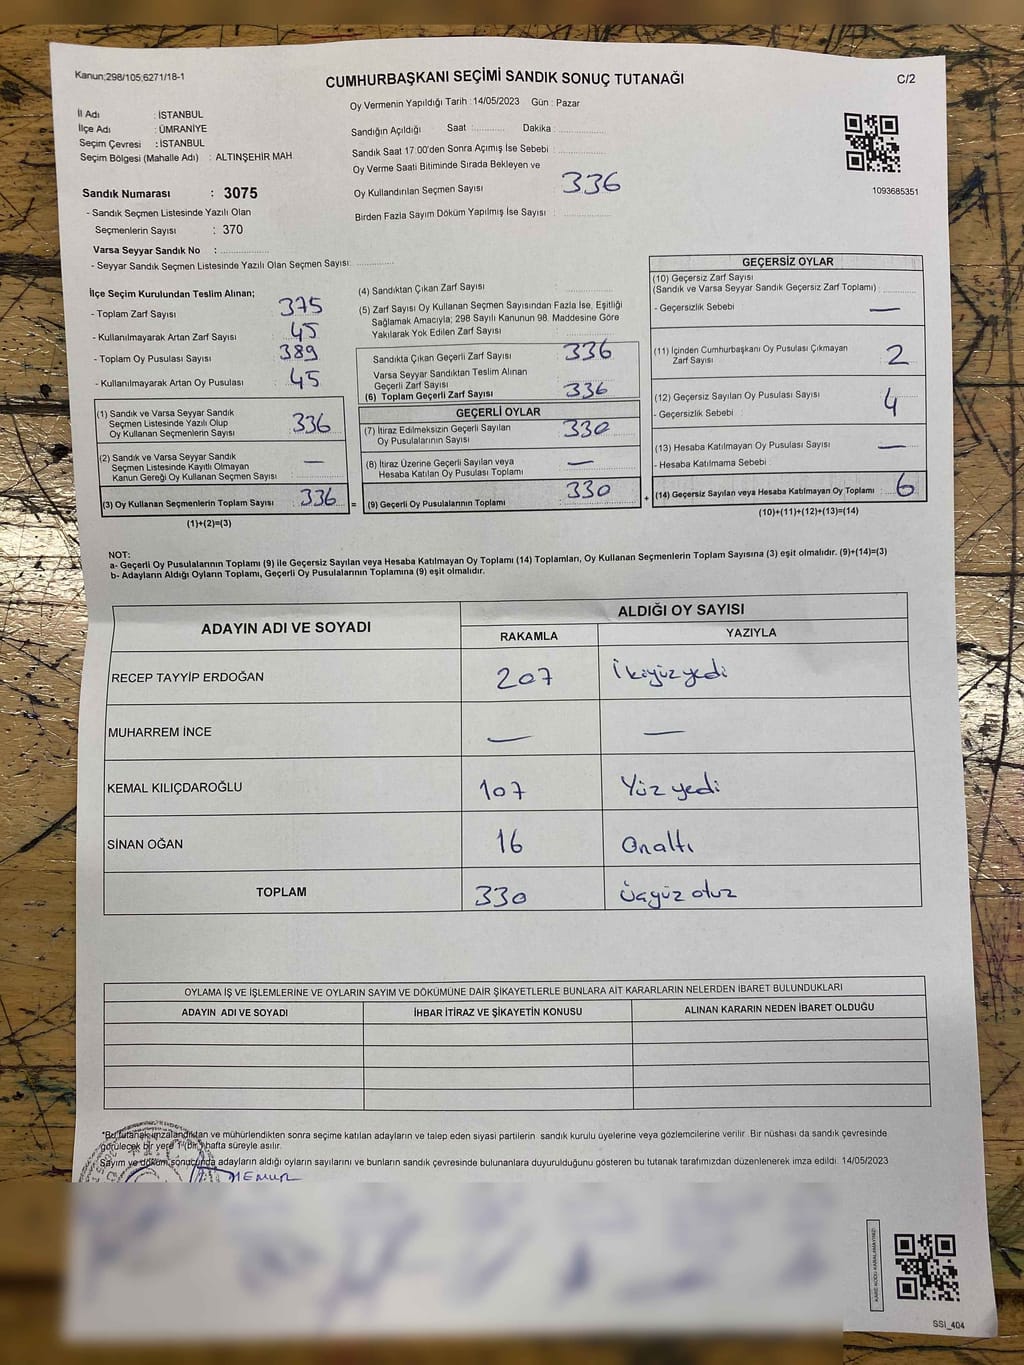 Kanun;298/105;6271/18-1
CUMHURBAŞKANI SEÇİMİ SANDIK SONUÇ TUTANAĞI
C/2
İl Adı : İSTANBUL
İlçe Adı : ÜMRANİYE
Seçim Çevresi : İSTANBUL
Seçim Bölgesi (Mahalle Adı) : ALTINŞEHİR MAH
Sandık Numarası : 3075
- Sandık Seçmen Listesinde Yazılı Olan
Seçmenlerin Sayısı : 370
Varsa Seyyar Sandık No :
- Seyyar Sandık Seçmen Listesinde Yazılı Olan Seçmen Sayısı:
Oy Vermenin Yapıldığı Tarih : 14/05/2023 Gün : Pazar
Sandığın Açıldığı Saat : Dakika :
Sandık Saat 17:00'den Sonra Açımış İse Sebebi :
Oy Verme Saati Bitiminde Sırada Bekleyen ve
Oy Kullandırılan Seçmen Sayısı : 336
Birden Fazla Sayım Döküm Yapılmış İse Sayısı :
1093685351
İlçe Seçim Kurulundan Teslim Alınan;
- Toplam Zarf Sayısı : 375
- Kullanılmayarak Artan Zarf Sayısı : 45
- Toplam Oy Pusulası Sayısı : 389
- Kullanılmayarak Artan Oy Pusulası : 45
(1) Sandık ve Varsa Seyyar Sandık
Seçmen Listesinde Yazılı Olup
Oy Kullanan Seçmenlerin Sayısı : 336
(2) Sandık ve Varsa Seyyar Sandık
Seçmen Listesinde Kayıtlı Olmayan
Kanun Gereği Oy Kullanan Seçmen Sayısı : —
(3) Oy Kullanan Seçmenlerin Toplam Sayısı : 336 =
(1)+(2)=(3)
(4) Sandıktan Çıkan Zarf Sayısı
(5) Zarf Sayısı Oy Kullanan Seçmen Sayısından Fazla İse, Eşitliği
Sağlamak Amacıyla; 298 Sayılı Kanunun 98. Maddesine Göre
Yakılarak Yok Edilen Zarf Sayısı :
Sandıkta Çıkan Geçerli Zarf Sayısı : 336
Varsa Seyyar Sandıktan Teslim Alınan
Geçerli Zarf Sayısı
(6) Toplam Geçerli Zarf Sayısı : 336
GEÇERLİ OYLAR
(7) İtiraz Edilmeksizin Geçerli Sayılan
Oy Pusulalarının Sayısı : 330
(8) İtiraz Üzerine Geçerli Sayılan veya
Hesaba Katılan Oy Pusulası Toplamı : —
(9) Geçerli Oy Pusulalarının Toplamı : 330 +
GEÇERSİZ OYLAR
(10) Geçersiz Zarf Sayısı
(Sandık ve Varsa Seyyar Sandık Geçersiz Zarf Toplamı) :
- Geçersizlik Sebebi : —
(11) İçinden Cumhurbaşkanı Oy Pusulası Çıkmayan
Zarf Sayısı : 2
(12) Geçersiz Sayılan Oy Pusulası Sayısı : 4
- Geçersizlik Sebebi :
(13) Hesaba Katılmayan Oy Pusulası Sayısı : —
- Hesaba Katılmama Sebebi
(14) Geçersiz Sayılan veya Hesaba Katılmayan Oy Toplamı : 6
(10)+(11)+(12)+(13)=(14)
NOT:
a- Geçerli Oy Pusulalarının Toplamı (9) ile Geçersiz Sayılan veya Hesaba Katılmayan Oy Toplamı (14) Toplamları, Oy Kullanan Seçmenlerin Toplam Sayısına (3) eşit olmalıdır. (9)+(14)=(3)
b- Adayların Aldığı Oyların Toplamı, Geçerli Oy Pusulalarının Toplamına (9) eşit olmalıdır.
ADAYIN ADI VE SOYADI
ALDIĞI OY SAYISI
RAKAMLA YAZIYLA
RECEP TAYYİP ERDOĞAN 207 İkiyüzyedi
MUHARREM İNCE — —
KEMAL KILIÇDAROĞLU 107 Yüz yedi
SİNAN OĞAN 16 Onaltı
TOPLAM 330 üçyüz otuz
OYLAMA İŞ VE İŞLEMLERİNE VE OYLARIN SAYIM VE DÖKÜMÜNE DAİR ŞİKAYETLERLE BUNLARA AİT KARARLARIN NELERDEN İBARET BULUNDUKLARI
ADAYIN ADI VE SOYADI İHBAR İTİRAZ VE ŞİKAYETİN KONUSU ALINAN KARARIN NEDEN İBARET OLDUĞU
*Bu tutanak imzalandıktan ve mühürlendikten sonra seçime katılan adayların ve talep eden siyasi partilerin sandık kurulu üyelerine veya gözlemcilerine verilir. Bir nüshası da sandık çevresinde
görülecek bir yere 1 (bir) hafta süreyle asılır.
Sayım ve döküm sonucunda adayların aldığı oyların sayılarını ve bunların sandık çevresinde bulunanlara duyurulduğunu gösteren bu tutanak tarafımızdan düzenlenerek imza edildi. 14/05/2023
MEMUR
SSİ_404